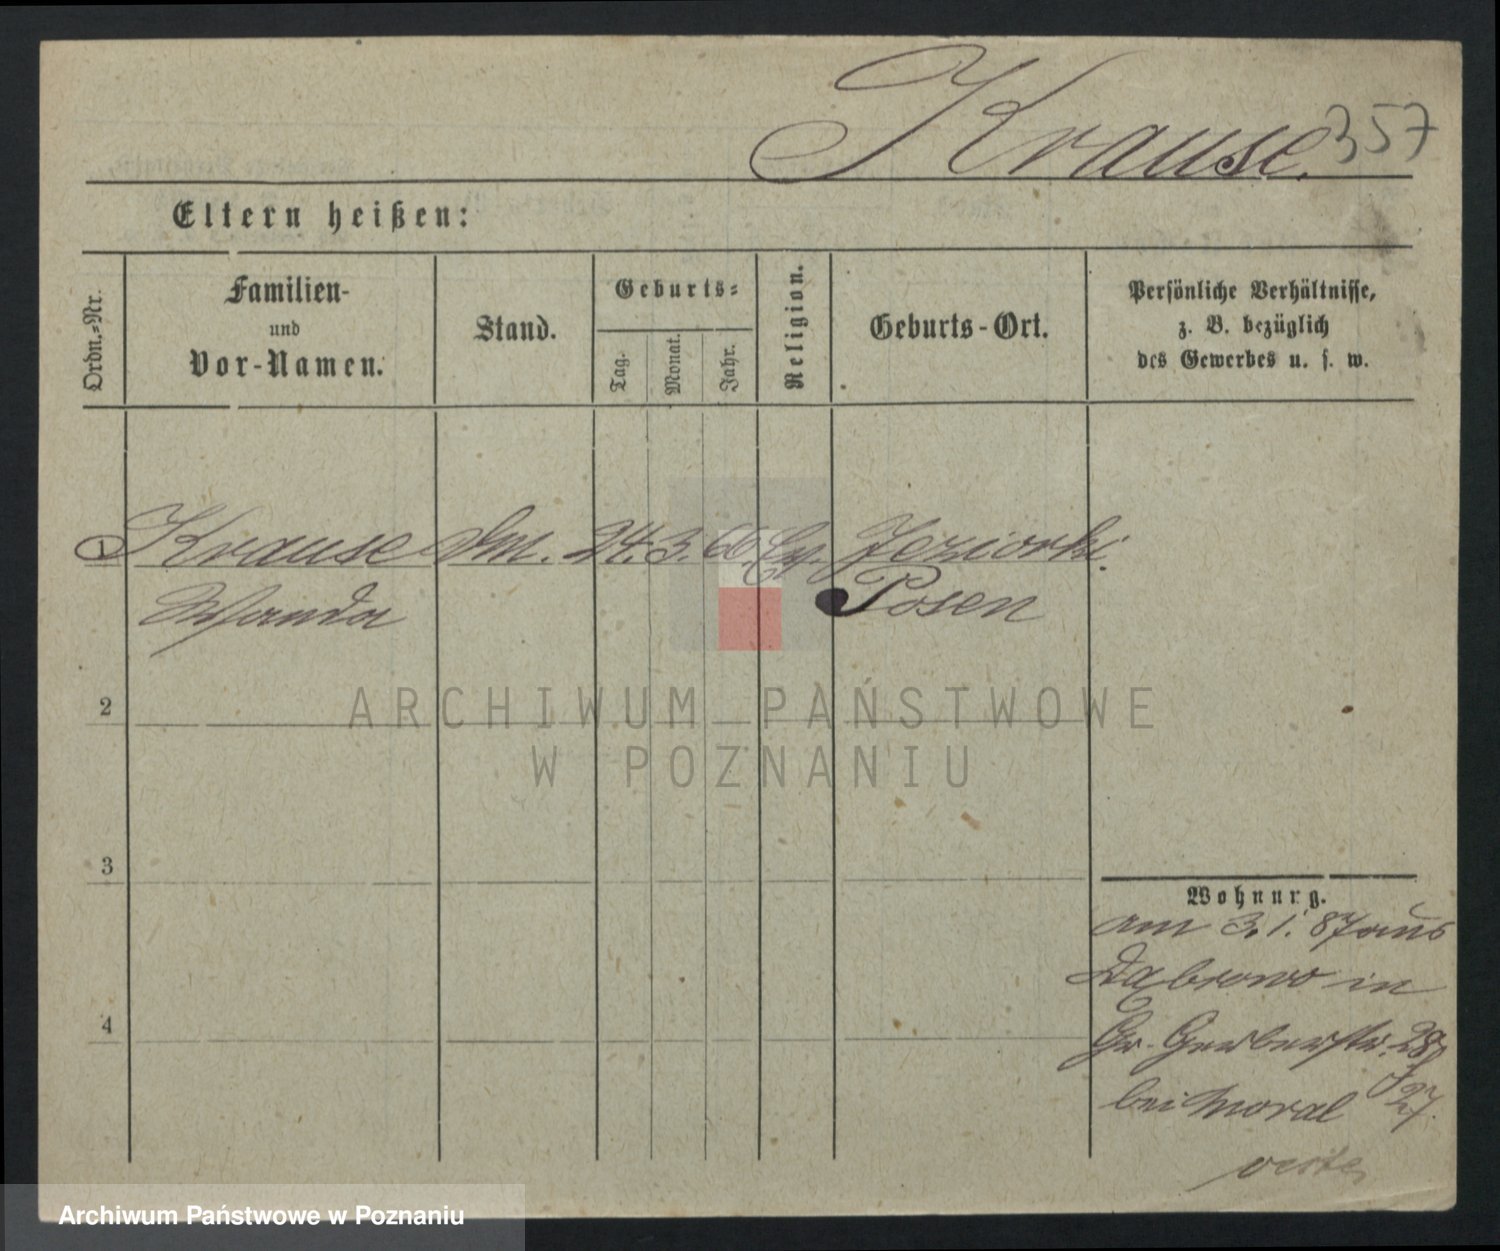 Krause. 357
Eltern heißen:
Ordn.-Nr.
Familien-
und
Vor-Namen.
Stand.
Geburts-
Tag.
Monat.
Jahr.
Religion.
Geburts-Ort.
Persönliche Verhältnisse,
z. B. bezüglich
des Gewerbes u. s. w.
1 Krause 24. 3. 66. Ev. Jeziorki.
Wanda Posen
2
ARCHIWUM PAŃSTWOWE
W POZNANIU
3
Wohnung.
am 3.1.87 aus
Dąbrowo in
Gr. Gerberstr. 28
bei Moral
4
Archiwum Państwowe w Poznaniu